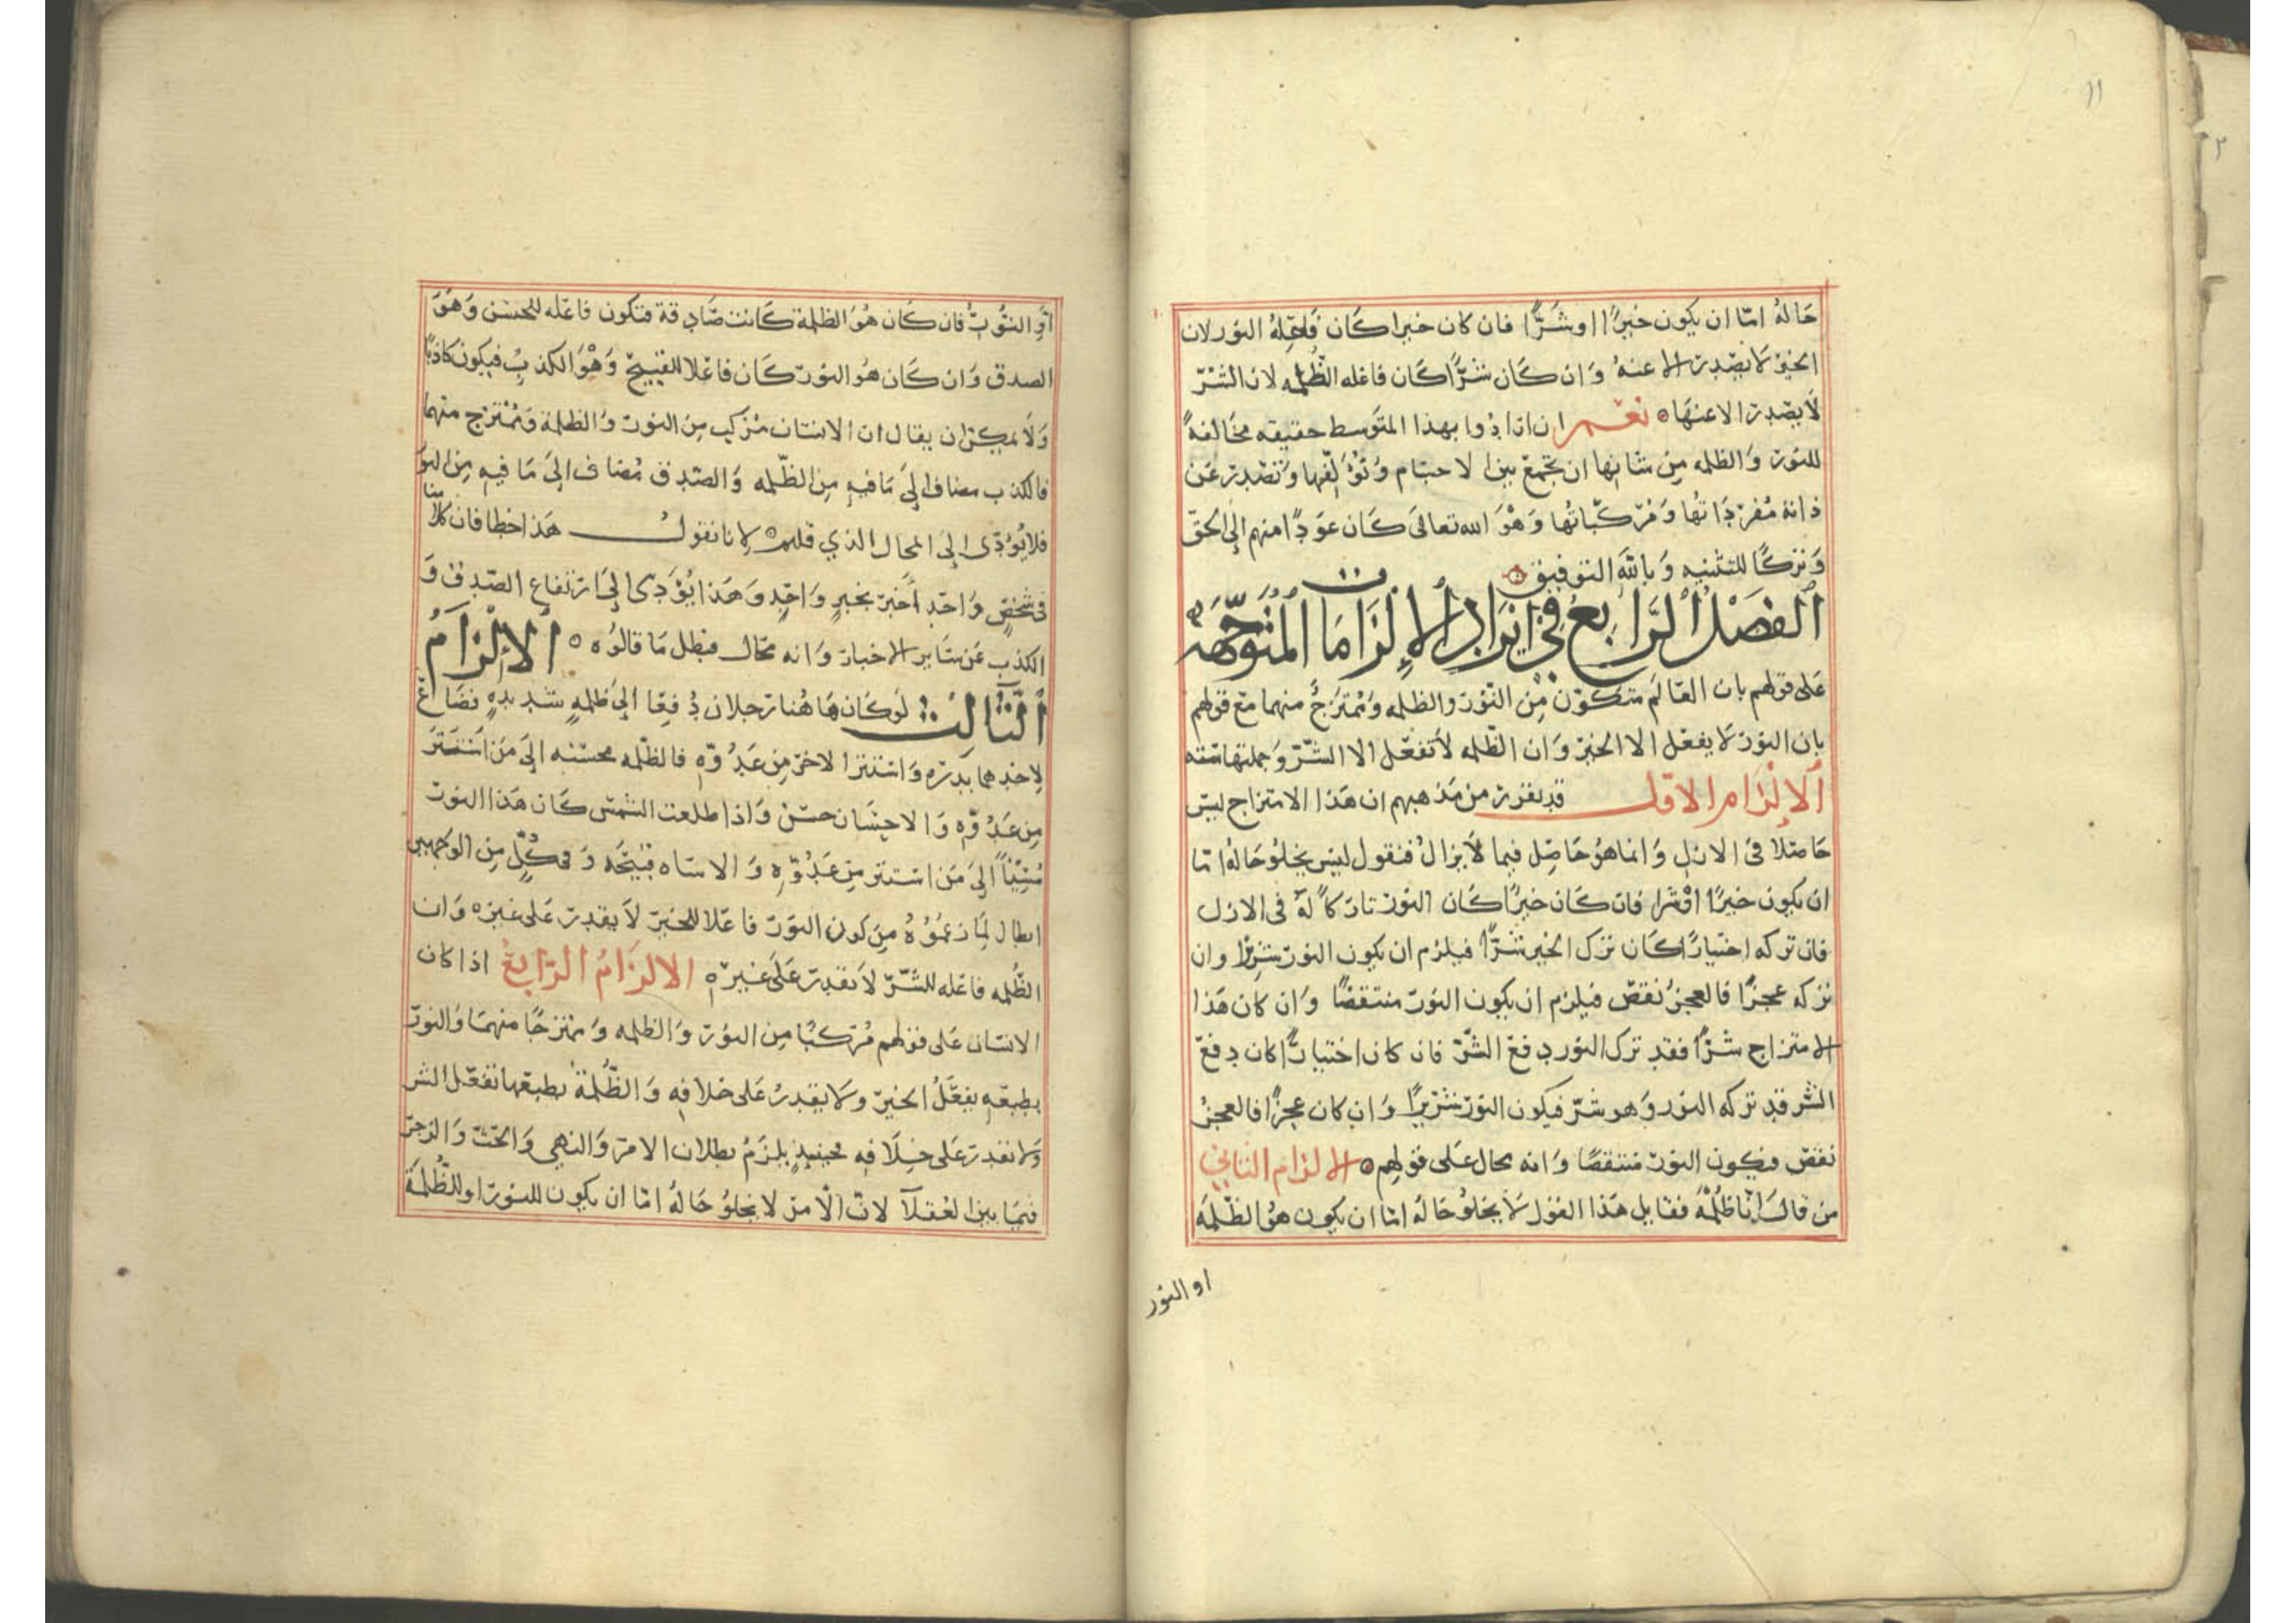 ١١
٢
حَاله امّا ان يكون خيرًا او شَرًّا فان كان خيرا كَان فَاعِلهُ النور لان
الخير لا يصدر الا عنهُ وَان كَان شرًّا كَان فاعله الظُلمه لان الشرّ
لا يصدر الا عنهَا ه نعم ان ارادُوا بهذا المتَوسط حقيقه مخَالفةً
للنور وَالظلمه مِن شانها ان تجمع بين الاجسَام وَتؤلّفها وَتصدر عَن
ذاته مُفردَاتها وَمركّباتُها وَهْوَ الله تعالىَ كَان عوَدًا منهم إلى الحقّ
وَتركًا للتثنيه وَباللّه التوفيق
الفصَل الرَّابع في ايرَاد الإلزامَات المُتَوجّهَه
عَلى قولهم بان العَالَم متكوّن مِن النّور والظلمه وَممُتزجٌ منهما مَع قولهم
بان النور لا يفعَل الا الخير وَان الظّلمه لا تفعَل الا الشّرّ وَجملتها ستّه
الإلزَام الاول قد تقرر من مَذهبهم ان هَذا الامتزاج ليسَ
حَاصلا فى الازل وَانما هوُ حَاصِل فيما لا يزالُ فنقول ليس يخلُو حَالهُ امّا
ان يكون خيرًا اوْ شرا فان كَان خيرًا كَان النور تاركاً لهُ فى الازل
فان تركه اختيارًا كَان ترك الخير شرًّا فيلزم ان يكون النور شرّيرًا وان
تركه عجزًا فالعجزُ نقصٌ فيلزم ان يكون النورُ منتقصًا وَان كان هَذا
الامتزاج شرًّا فقد ترك النور دفعَ الشرّ فان كان اختيارًا كان دفعَ
الشر قد تركه النور وَهو شرّ فيكون النور شرّيرًا وَان كان عجزًا فالعجزُ
نقصٌ فيكون النور منتقصًا وَانه محال عَلى قولهم ه الالزام الثاني
من قالَ انَا ظُلمْةُ فقايل هَذا القول لا يخلُو حَالهُ امّا ان يكون هوُ الظّلمَة
او النور
أوِ النوُّر فان كَان هُوَ الظلمة كَانت صَادقة فتكون فاعله للحسَن وَهوَ
الصدق وَان كَان هُو النور كَان فاعلا للقبيح وَهْوَ الكذبِ فيكون كاذبًا
وَلَا يمكن ان يقال ان الانسَان مرَكب مِن النور وَالظلمة وَممُتزج منهما
فالكذب مضاف إلىَ مَا فيهِ مِن الظّلمه وَالصّدق مُضاف الىَ مَا فيهِ مِن النور
فلا يؤدّى الى المحال الذي قلتم ه لانا نقولُ هَذا خطا فان كلا منّا
فى شخصٍ وَاحدٍ أخبَر بخبرٍ وَاحِدٍ وَهَذا يُؤدى إلىَ ارتفاع الصّدق وَ
الكذب عَن سَاير الاخبار وَانه محال فبطل مَا قالوُه ه الإلْزَامُ
الثَّالث لوكَان هَا هُنا رَجلان دُفِعَا إلىَ ظلمهٍ شديدهٍ فضَاعَ
لاحدِهما بدرَه وَاستترا لاخر مِن عَدُوّه فالظّلمه محسنه إلىَ مَن استتَرَ
مِن عَدُوّه وَالاحسَان حسَن وَاذا طلعت الشمسَ كَان هَذا النور
مُسيْئاً إلىَ مَن استتر مِن عَدُوّه وَالاساه قبيْحَه وَفى كُلٍّ مِن الوَجهين
ابطال لِمَا زعمُوُهُ مِن كون النوَر فاعلا للخير لا يقدر عَلى غيره وَان
الظُّلمه فاعله للشّرّ لا تقدِر عَلىَ غيره الالزَامُ الرّابعُ اذا كان
الانسَان عَلى قولهم مُركبًا مِن النوُر وَالظلمه وَممتزجًا منهمَا وَالنور
بطبعه يفعَلُ الخير وَلا يقدرُ عَلى خلافه وَالظُّلمةُ بطبعها تفعَل الشر
وَلا تقدر عَلى خلَافه فحينيذٍ يلزَمُ بطلان الامر وَالنهي وَالحَث وَالزجر
فيمَا بين العُقلآ لان الامر لا يخلوُ حَالهُ امّا ان يكون للنور او للظّلمَة